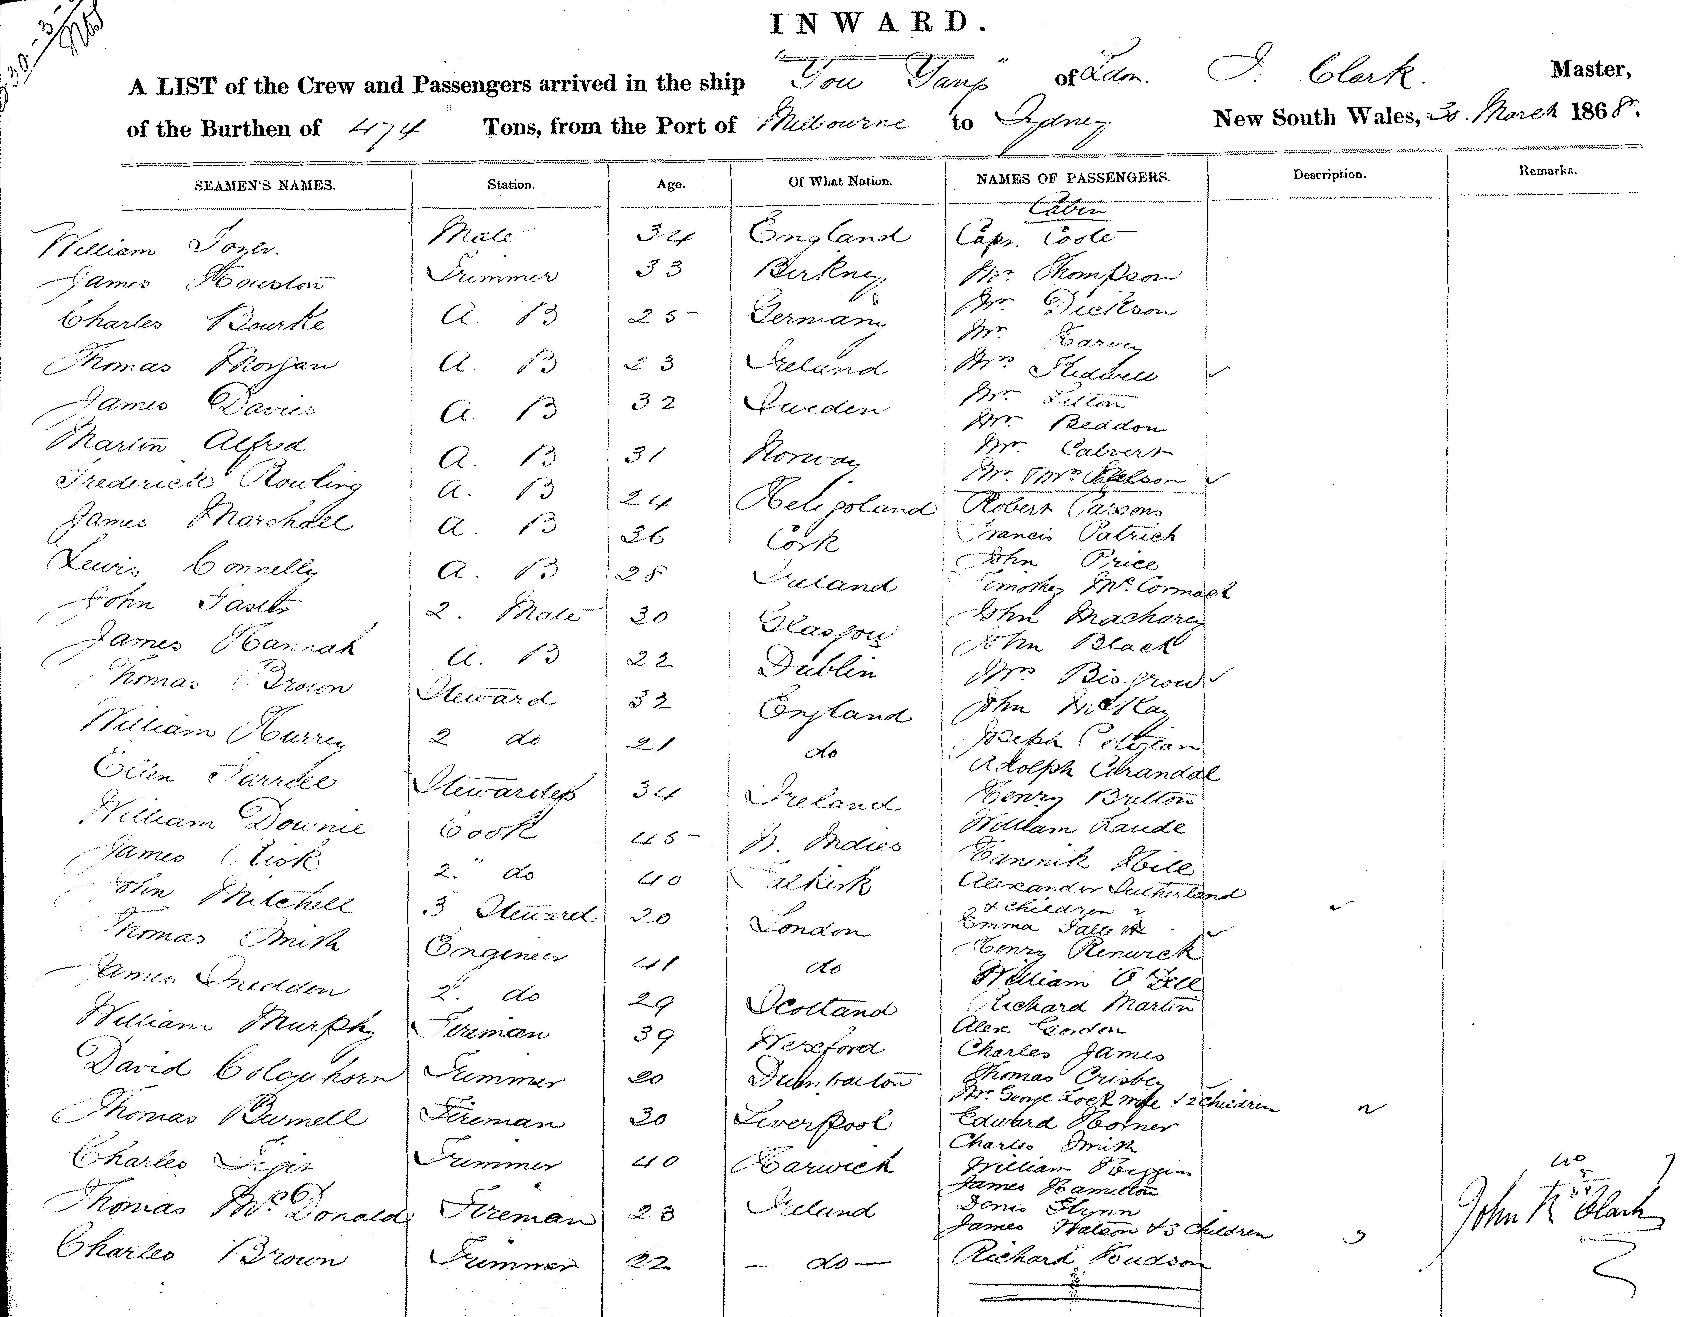 INWARD.
A LIST of the Crew and Passengers arrived in the ship "You Yangs" of Ldn. J. Clark. Master,
of the Burthen of 474 Tons, from the Port of Melbourne to Sydney New South Wales, 30. March 1868.
SEAMEN'S NAMES. Station. Age. Of What Nation. NAMES OF PASSENGERS. Description. Remarks.
Cabin
William Mate 34 England Capt. Coote
James Houston Trimmer 33 Mr. Thompson
Charles Bourke A. B 25 Germany Mr. Dickson
Mr. Harvey
Thomas Morgan A. B 23 Ireland Mrs
James Davies A. B 32 Sweden Mr.
Mr. Beddon
Martin Alfred A. B 31 Norway Mr. Calvert
Frederick Rowling A. B 24 Heligoland Robert Parsons
James Marshall A. B 26 Cork Francis Patrick
Lewis Connelly A. B 28 Ireland John Price
Timothey McCormack
John 2. Mate 30 Glasgow John
James Hannah A. B 22 Dublin John Black
Mrs Bisgrow
Thomas Brown Steward 32 England John McKay
William Hurrey 2 do 21 do Joseph
Adolph
Ellen Farrell Stewardess 34 Ireland Henry Britton
William Downie Cook 45 W. Indies William Laude
Hannik Hill
James 2. do 40 Falkirk Alexander Sutherland
John Mitchell 3 Steward 20 London & children 2
Emma
Thomas Smith Engineer 41 do Henry Renwick
William
James Snedden 2. do 29 Scotland Richard Martin
William Murphy Fireman 39 Hereford Alex Gordon
Charles James
David Colquhorn Trimmer 20 Dumbarton Thomas Crisbey
Mr. George Lock wife & 2 children
Thomas Burnell Fireman 30 Liverpool Edward Horner
Charles Smith
Charles Trimmer 40 Harwich William Higgins
James Hamilton
Thomas McDonald Fireman 23 Ireland Denis Flynn
James Watson & 3 Children
Charles Brown Trimmer 22 — do — Richard Hudson
John R. Clark